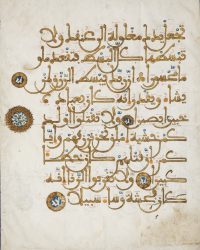 تجعل يدك مغلولة الى عنقك ولا
تبسطها كل البسط فتقعد ملوما
محسورا ان ربك يبسط الرزق لمن
يشاء ويقدر انه كان بعباده
خبيرا بصيرا ولا تقتلوا اولد
كم خشية املق نحن نرزقهم وايا
كم ان قتلهم كان خطا
كبيرا ولا تقربوا الزنى انه
كان فحشة وساء سبيلا